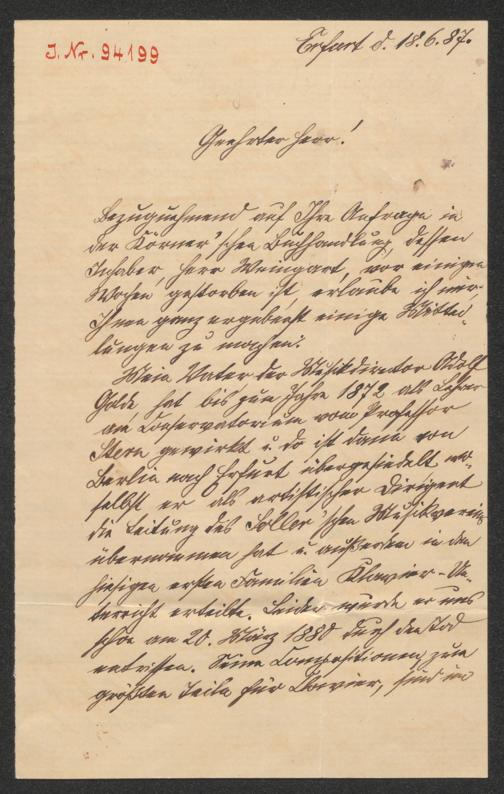 J. Nr. 94199
Erfurt d. 18.6.87.
Geehrter Herr!
Bezugnehmend auf Ihre Anfrage in
der Körner'schen Buchhandlung, dessen
Inhaber, Herr Weingart, vor einigen
Wochen gestorben ist, erlaube ich mir,
Ihnen ganz ergebenst einige Mittei-
lungen zu machen:
Mein Vater der Musikdirector Adolf
Golde hat bis zum Jahre 1872 als Lehrer
am Conservatorium vom Professor
Stern gewirkt u. do ist dann von
Berlin nach Erfurt übergesiedelt wo-
selbst er als artistischer Dirigent
die Leitung des Soller'schen Musikvereins
übernommen hat u. außerdem in den
hiesigen ersten Familien Klavier-Un-
terricht erteilte. Leider wurde er uns
schon am 20. März 1880 durch den Tod
entrissen. Seine Compositionen, zum
größten Teile für Clavier, sind im